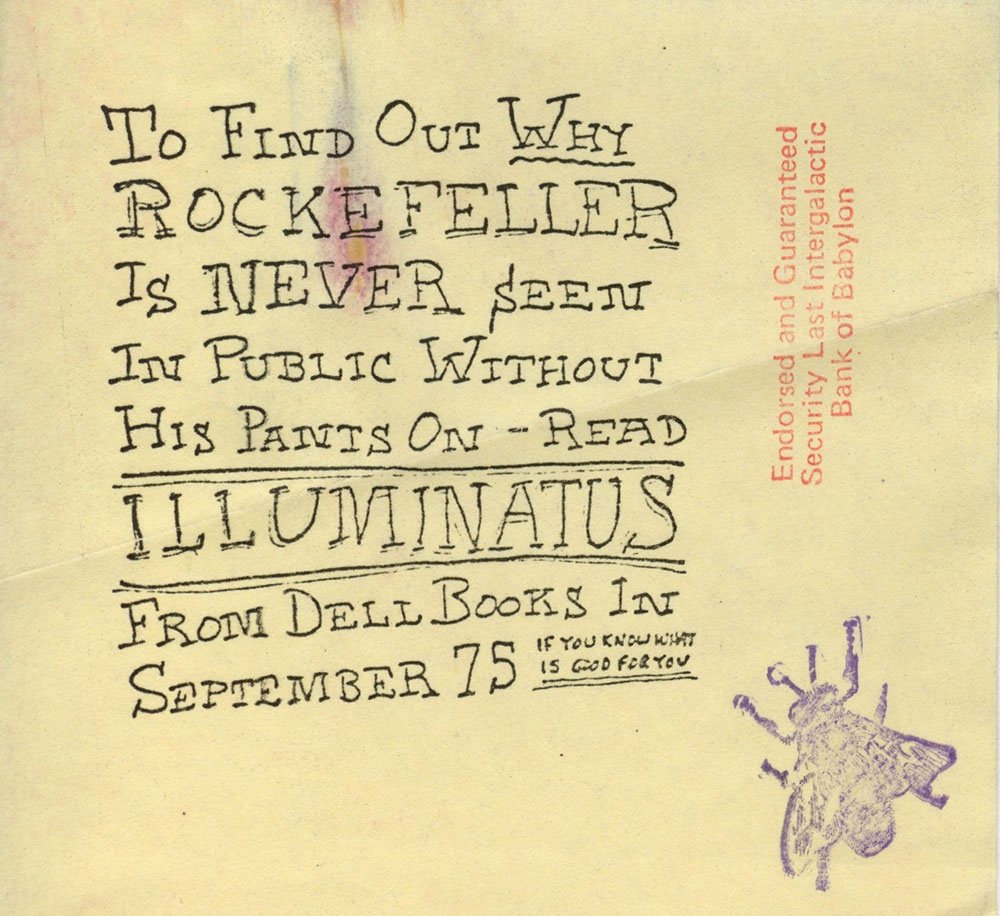 To Find Out Why
ROCKEFELLER
Is NEVER Seen
In Public Without
His Pants On - Read
ILLUMINATUS
From Dell Books In
September 75 IF YOU KNOW WHAT
IS GOOD FOR YOU
Endorsed and Guaranteed
Security Last Intergalactic
Bank of Babylon